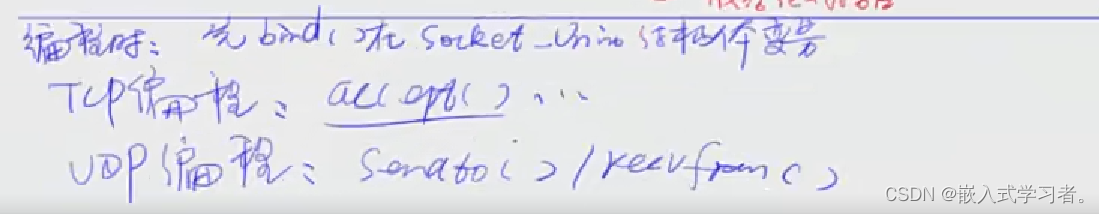 编程时：先bind()在Socket_Unix结构体变量
TCP编程：accept()、...
UDP编程：Sendto()/recvfrom()
CSDN @嵌入式学习者。